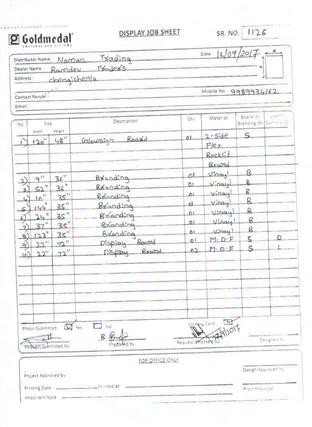 Goldmedal
DISPLAY JOB SHEET
SR. NO. 1126
Distributor Name: Naman Trading
Date 12/07/2017
Dealer Name Ramdev
Address: chengicherla
Contact Person:
Mobile No. 9989934162
Email:
No. Size Description Qty. Material
Width Height
1) 120" 48" Glowsign Board 01 2-side S
Flex
Board
2) 9" 36" Branding 01 Vinayl B
3) 52" 36" Branding 01 Vinayl B
4) 10" 35" Branding 01 Vinayl B
5) 144" 35" Branding 01 Vinayl B
6) 24" 35" Branding 01 Vinayl B
7) 37" 35" Branding 01 Vinayl B
8) 123" 35" Branding 01 Vinayl B
9) 22" 72" Display Board 01 M.D.F S D
10) 22" 72" Display Board 02 M.D.F S L
Photo Submitted Yes No
Request Submitted by Request Prepared by Designed by
FOR OFFICE ONLY
Project Approved by Design Approved by
Printing Date Printed at
Important Note